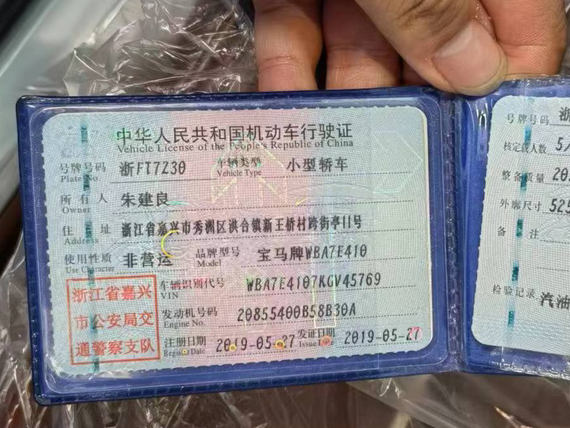 中华人民共和国机动车行驶证
Vehicle License of the People's Republic of China
号牌号码 浙FT7Z30 车辆类型 小型轿车
Plate No. Vehicle Type
所有人 朱建良
Owner
住址 浙江省嘉兴市秀洲区洪合镇新王桥村跨街亭11号
Address
使用性质 非营运 品牌型号 宝马牌WBA7E410
Use Character Model
浙江省嘉兴
市公安局交
通警察支队
车辆识别代号 WBA7E4107KGV45769
VIN
发动机号码 20855400B58B30A
Engine No.
注册日期 2019-05-27 发证日期 2019-05-27
Register Date Issue Date
号牌号码 浙
核定载人数 5人
整备质量 20
外廓尺寸 525
备注
检验记录 汽油